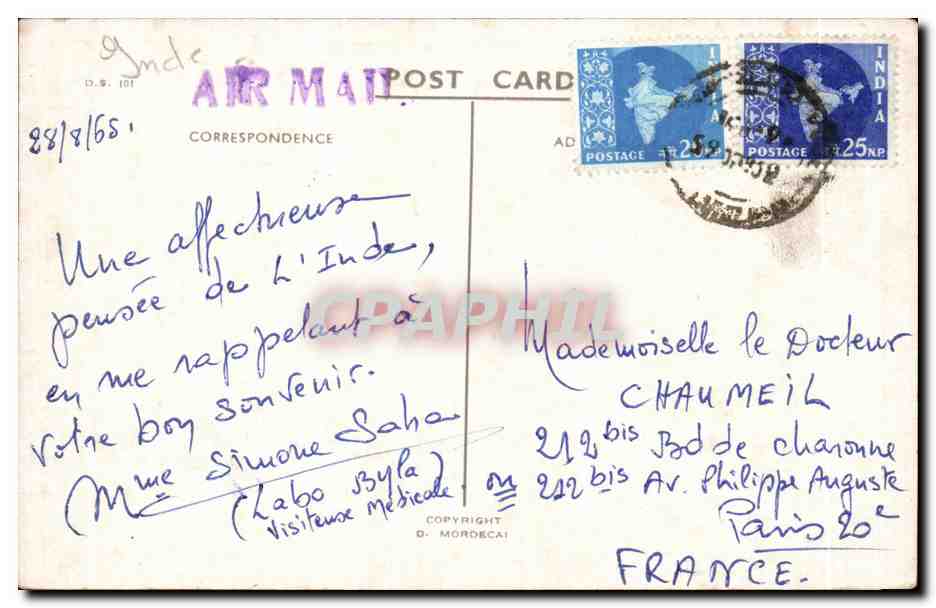 Inde
D.S. 101
AIR MAIL
POST CARD
28/8/65.
CORRESPONDENCE
AD
INDIA
POSTAGE
INDIA
POSTAGE
25 N.P.
Une affectueuse
pensée de L'Inde,
en me rappelant à
votre bon souvenir.
Mme Simone Saha
(Labo Byla)
Visiteuse Médicale
COPYRIGHT
D. MORDECAI
CPAPHIL
Mademoiselle le Docteur
CHAUMEIL
212 bis Bd de Charonne
ou 212 bis Av. Philippe Auguste
Paris 20e
FRANCE.